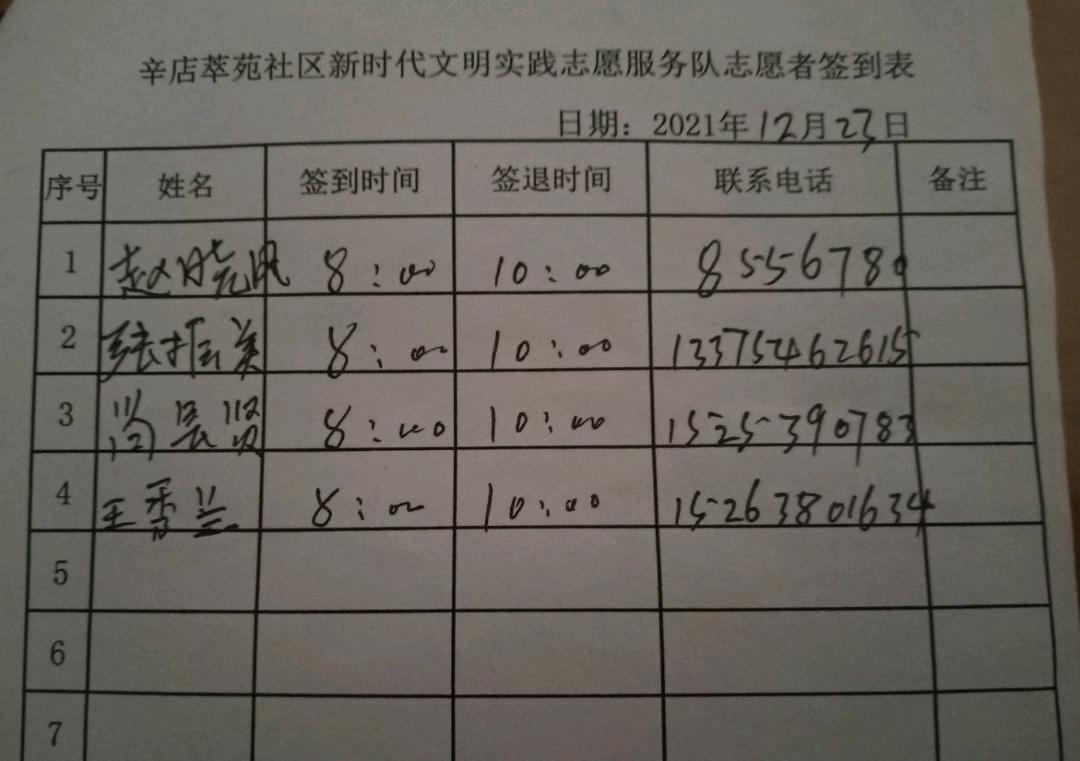 辛店萃苑社区新时代文明实践志愿服务队志愿者签到表
日期：2021年12月23日
序号 姓名 签到时间 签退时间 联系电话 备注
1 赵晓凤 8:00 10:00 8556780
2 张振美 8:00 10:00 13375462615
3 尚长贤 8:00 10:00 1525390783
4 王秀兰 8:00 10:00 15263801634
5
6
7